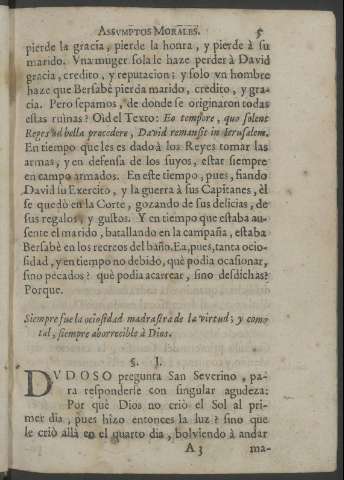 ASSVMPTOS MORALES. 5
pierde la gracia, pierde la honra, y pierde à su
marido. Vna muger sola le haze perder à David
gracia, credito, y reputacion; y solo vn hombre
haze que Bersabè pierda marido, credito, y gra-
cia. Pero sepamos, de donde se originaron todas
estas ruinas? Oid el Texto: Eo tempore, quo solent
Reges ad bella procedere, David remansit in Ierusalem.
En tiempo que les es dado à los Reyes tomar las
armas, y en defensa de los suyos, estar siempre
en campo armados. En este tiempo, pues, fiando
David su Exercito, y la guerra à sus Capitanes, èl
se quedò en la Corte, gozando de sus delicias, de
sus regalos, y gustos. Y en tiempo que estaba au-
sente el marido, batallando en la campaña, estaba
Bersabè en los recreos del baño. Ea, pues, tanta ocio-
sidad, y en tiempo no debido, què podia ocasionar,
sino pecados? què podia acarrear, sino desdichas?
Porque.
Siempre fue la ociosidad madrastra de la virtud; y como
tal, siempre aborrecible à Dios.
§. I.
DVDOSO pregunta San Severino, pa-
ra responderse con singular agudeza:
Por què Dios no criò el Sol al pri-
mer dia, pues hizo entonces la luz? sino que
le criò allà en el quarto dia, bolviendo à andar
A 3 ma-